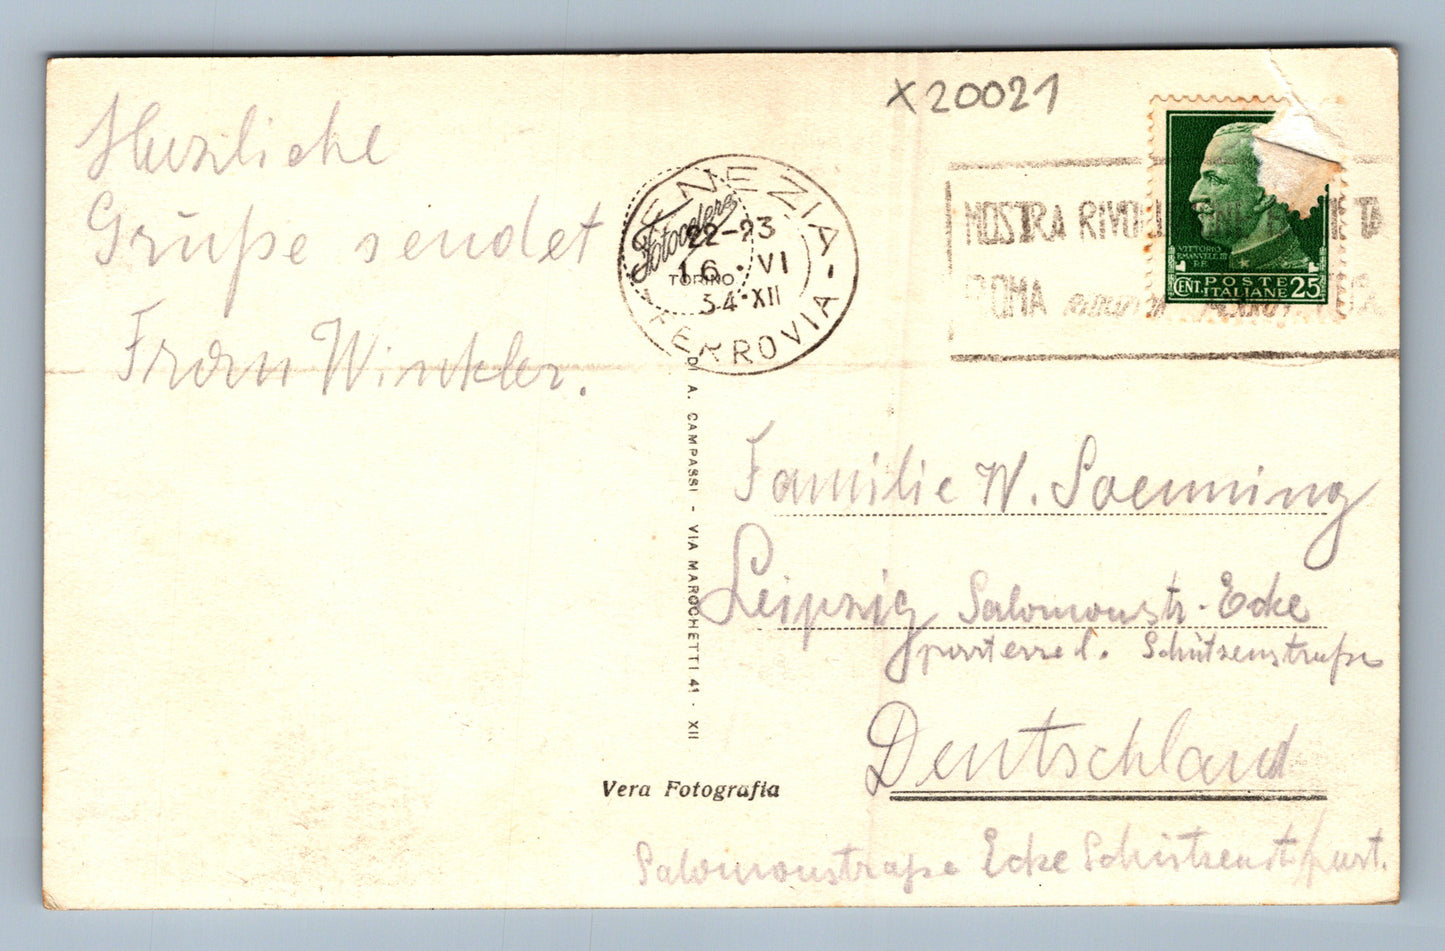 X20021
Herzliche
Grüße sendet
Fran Winkler.
VENEZIA
FERROVIA
22-23
16 · VI
34 · XII
Fotocelere
TORINO
MOSTRA RIVOL
ROMA
VITTORIO
EMANVELE III
P.F.
POSTE
CENT. ITALIANE 25
DI A. CAMPASSI - VIA MAROCHETTI 41 · XII
Vera Fotografia
Familie W. Soenning
Leipzig Salomonstr. Ecke
parterre l. Schützenstraße
Deutschland
Salomonstraße Ecke Schützenst/part.